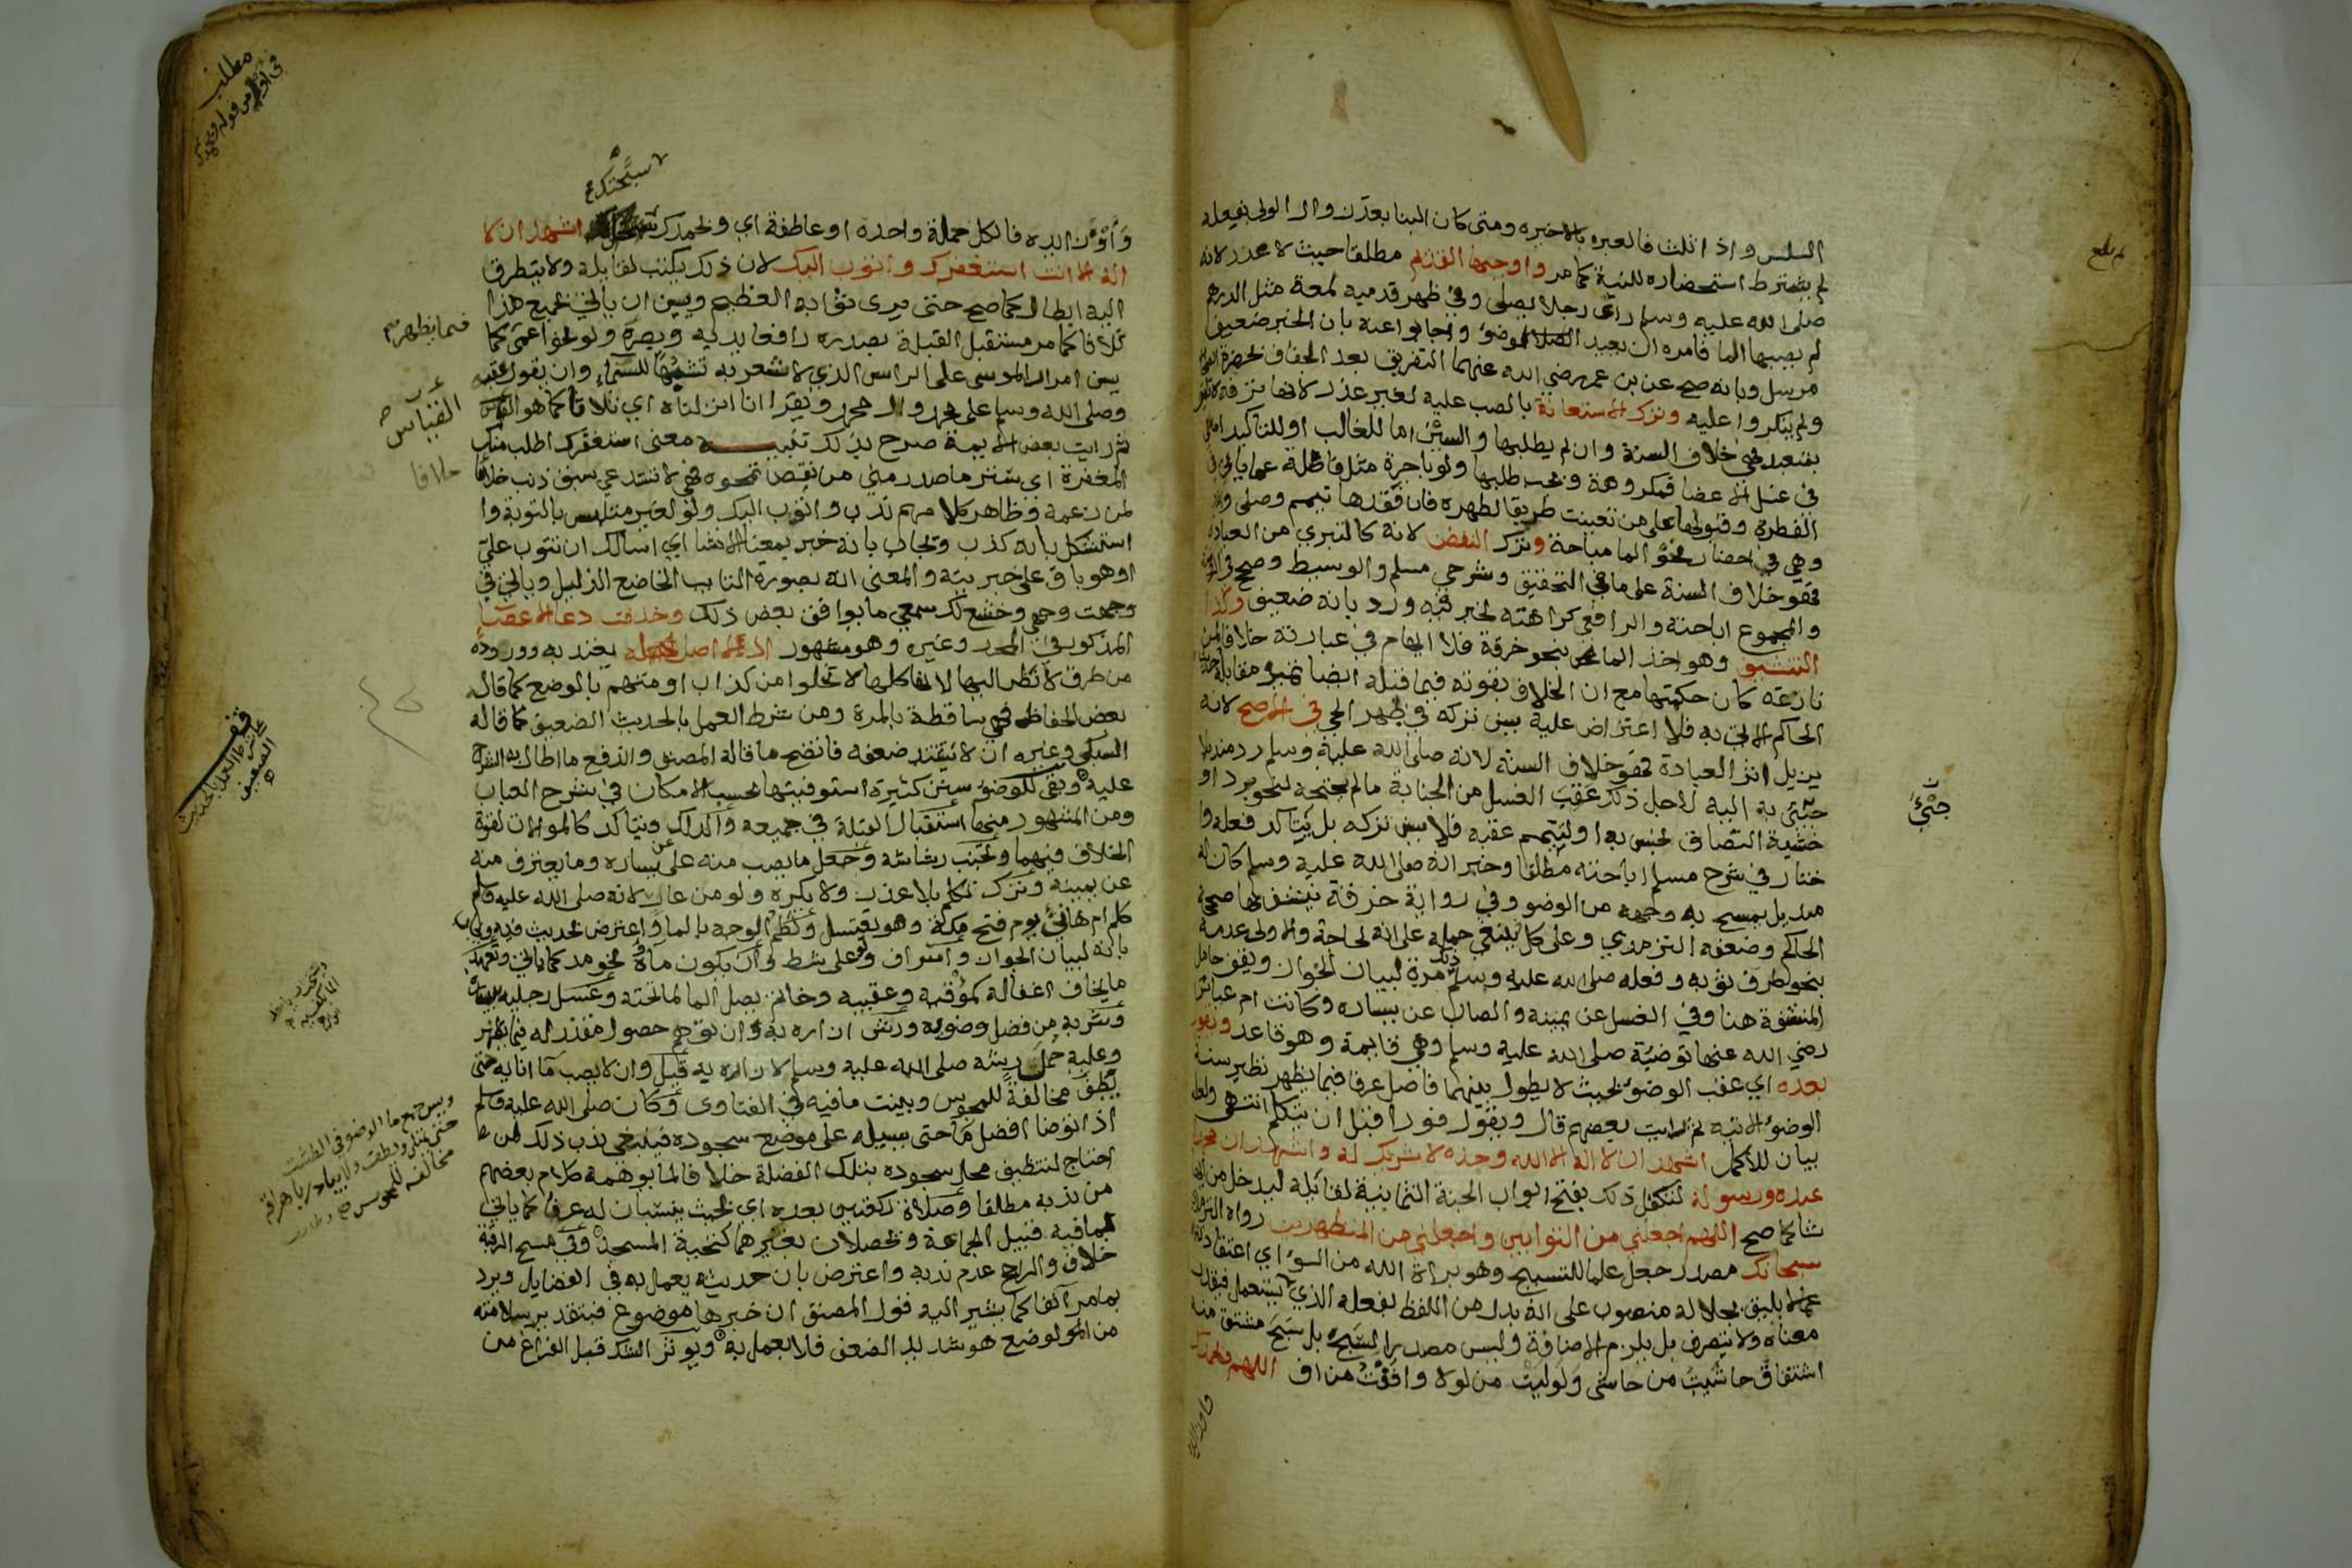 السلس واذا ثلث فالعبره بالاخيره ومتى كان البنا بعذر والا الولى بفعله
لم يشترط استحضاره للنية كما مر واوجبها القديم مطلقا حيث لا عذر لانه
صلى الله عليه وسلم راى رجلا يصلى وفي ظهر قدميه لمعة مثل الدرهم
لم يصيبها الما فامره ان يعيد الوضوء واجابوا عنه بان الخبر ضعيف
مرسل وبانه صح عن بن عمر رضي الله عنهما التفريق بعد الجفاف بحضرة
ولم ينكروا عليه وترك الاستعانة بالصب عليه لغير عذر لانها ترفه
بمتعبد فهي خلاف السنة وان لم يطلبها والسين اما للغالب او للتاكيد اما هي
في غسل الاعضا فمكروهة وتجب طلبها ولو باجرة مثل فاضلة عما ياتي في
الفطرة وقبولها على من تعينت طريقا لطهره فان فقدها تيمم وصلى
وهي في احضار نحو الما مباحة وترك النفض لانه كالتبري من العبادة
فهو خلاف السنة على ما في التحقيق وشرحي مسلم والوسيط وصحح في
والمجموع اباحته والرافعي كراهته لخبر فيه ورد بانه ضعيف وكذا
التنشيف وهو اخذ الما بنحو خرقة فلا ايهام في عبارته خلافا لمن
نازعه كان حكمتها مع ان الخلاف يفوته فيما قبله ايضا تميز مقابله
الحاكم الاتي به فلا اعتراض عليه يسن تركه في طهر الحي في الاصح لانه
يزيل اثر العبادة فهو خلاف السنة لانه صلى الله عليه وسلم رد منديلا
جئ به اليه لاجل ذلك عقب الغسل من الجنابة ما لم يحتجه لنحو برد او
خشية التصاق نجس به او لتيمم عقبه فلا يسن تركه بل يتاكد فعله وا
ختار في شرح مسلم اباحته مطلقا وخبر انه صلى الله عليه وسلم كان له
منديل يمسح به وجهه من الوضو وفي رواية خرقة يتنشف بها صححه
الحاكم وضعفه الترمذي وعلى كل ينبغي حمله على انه لحاجة والاولى عدمه
بنحو طرف ثوبه وفعله صلى الله عليه وسلم ذلك مرة لبيان الجواز ويقف حامل
المنشفة هنا وفي الغسل عن يمينه والصاب عن يساره وكانت ام عياش
رضي الله عنها توضئه صلى الله عليه وسلم وهي قايمة وهو قاعد ويقول
بعده اي عقب الوضوء بحيث لا يطول بينهما فاصل عرفا فيما يظهر نظير سنة
الوضوء الاتيه ثم رايت بعضهم قال ويقول فورا قبل ان يتكلم انتهى ولعله
بيان للاكمل اشهد ان لا اله الا الله وحده لا شريك له واشهد ان محمدا
عبده ورسوله لتكفل ذلك بفتح ابواب الجنة الثمانية لقائله ليدخل من ايها
شا كما صح اللهم اجعلني من التوابين واجعلني من المتطهرين رواه الترمذي
سبحانك مصدر جعل علما للتسبيح وهو براة الله من السوء اي اعتقاد
عما لا يليق بجلاله منصوب على انه بدل من اللفظ بفعله الذي لم يستعمل فيقدر
معناه ولا يتصرف بل يلزم الاضافة وليس مصدرا لسبح بل سبح مشتق منه
اشتقاق حاشيت من حاشى ولوليت من لولا وافقت من اف اللهم وبحمدك
واوه زايد
لم بلغ
جئ
سبحنك
واوه زايده فالكل جملة واحدة او عاطفة اي وبحمدك اشهد ان لا
اله الا انت استغفرك واتوب اليك لان ذلك يكتب لقايله ولا يتطرق
اليه ابطال كما صح حتى يرى ثوابه العظيم ويسن ان ياتي بجميع هذا
ثلاثا كما مر مستقبل القبلة بصدره رافعا يديه وبصره ولو نحو اعمى كما
يسن امرار الموسى على الراس الذي لا شعر به تشبها للسماء وان يقول عقبه
وصلى الله وسلم على محمد وال محمد ويقرا انا انزلناه اي ثلاثا كما هو القياس
ثم رايت بعض الايمة صرح بذلك تنبيه معنى استغفرك اطلب منك
المغفرة اي ستر ما صدر مني من نقص تمحوه فهي لا تستدعي سبق ذنب خلافا
لمن زعمه وظاهر كلامهم ندب واتوب اليك ولو لغير متلبس بالتوبة وا
استشكل بانه كذب ويجاب بانه خبر بمعنى الانشا اي اسالك ان تتوب علي
او هو باق على خبريته والمعنى انه بصورة التايب الخاضع الذليل وياتي في
وجهت وجهي وخشع لك سمعي ما يوافق بعض ذلك وحذفت دعا الاعضا
المذكور في المحرر وغيره وهو مشهور اذ لا اصل له يعتد به ووروده
من طرق لا نظر اليها لانها كلها لا تخلوا من كذاب او متهم بالوضع كما قاله
بعض الحفاظ فهي ساقطة بالمرة ومن شرط العمل بالحديث الضعيف كما قاله
السبكي وغيره ان لا يشتد ضعفه فاتضح ما قاله المصنف واندفع ما اطال به الشراح
عليه وبقي للوضوء سنن كثيرة استوفيتها بحسب الامكان في شرح العباب
ومن المشهور منها استقبال القبلة في جميعه والدلك ويتاكد كالموالات لقوة
الخلاف فيهما وتجنب رشاشه وجعل ما يصب منه على يساره وما يغترف منه
عن يمينه وترك تكلم بلا عذر ولا يكره ولو من عار لانه صلى الله عليه وسلم
كلم ام هاني يوم فتح مكة وهو يغتسل ولطم الوجه بالما واعترض لحديث فيه
بانه لبيان الجواز واسراف ولو على شط وان يكون ماؤه نحو مد كما ياتي وتعهد
ما يخاف اغفاله كموقيه وعقبيه وخاتم يصل الما لما تحته وغسل رجليه بيساره
وشربه من فضل وضوءه ورش ازاره به وان توهم حصول مقذر له فيما يظهر
وعليه حمل رشه صلى الله عليه وسلم لازاره به قيل وان لا يصب ما انايه حتى
يطف مخالفة للمجوس وبينت ما فيه في الفتاوى وكان صلى الله عليه وسلم
اذا توضا افضل ما حتى يسيله على موضع سجوده فينبغي ندب ذلك لمن
احتاج لتنظيف محل سجوده بتلك الفضلة خلافا لما يوهمه كلام بعضهم
من ندبه مطلقا وصلاة ركعتين بعده اي بحيث ينسبان له عرفا كما ياتي
بما فيه قبيل الجماعة وتحصلان بغيرهما كتحية المسجد وفي مسح الرقبة
خلاف والراجح عدم ندبه واعترض بان حديثه يعمل به في الفضايل ويرد
بما مر آنفا كما يشير اليه قول المصنف ان خبرها موضوع فبتقدير سلامته
من الوضع هو شديد الضعف فلا يعمل به ويوثر الشك قبل الفراغ من
مطلب
فيما يظهر
القياس
خلافا
قف
على شرط العمل بالحديث
الضعيف
ويسن جمع ما الوضو في الطشت
حتى يمتلى ويطف ولا يبادر باهراقه
مخالفه للمجوس